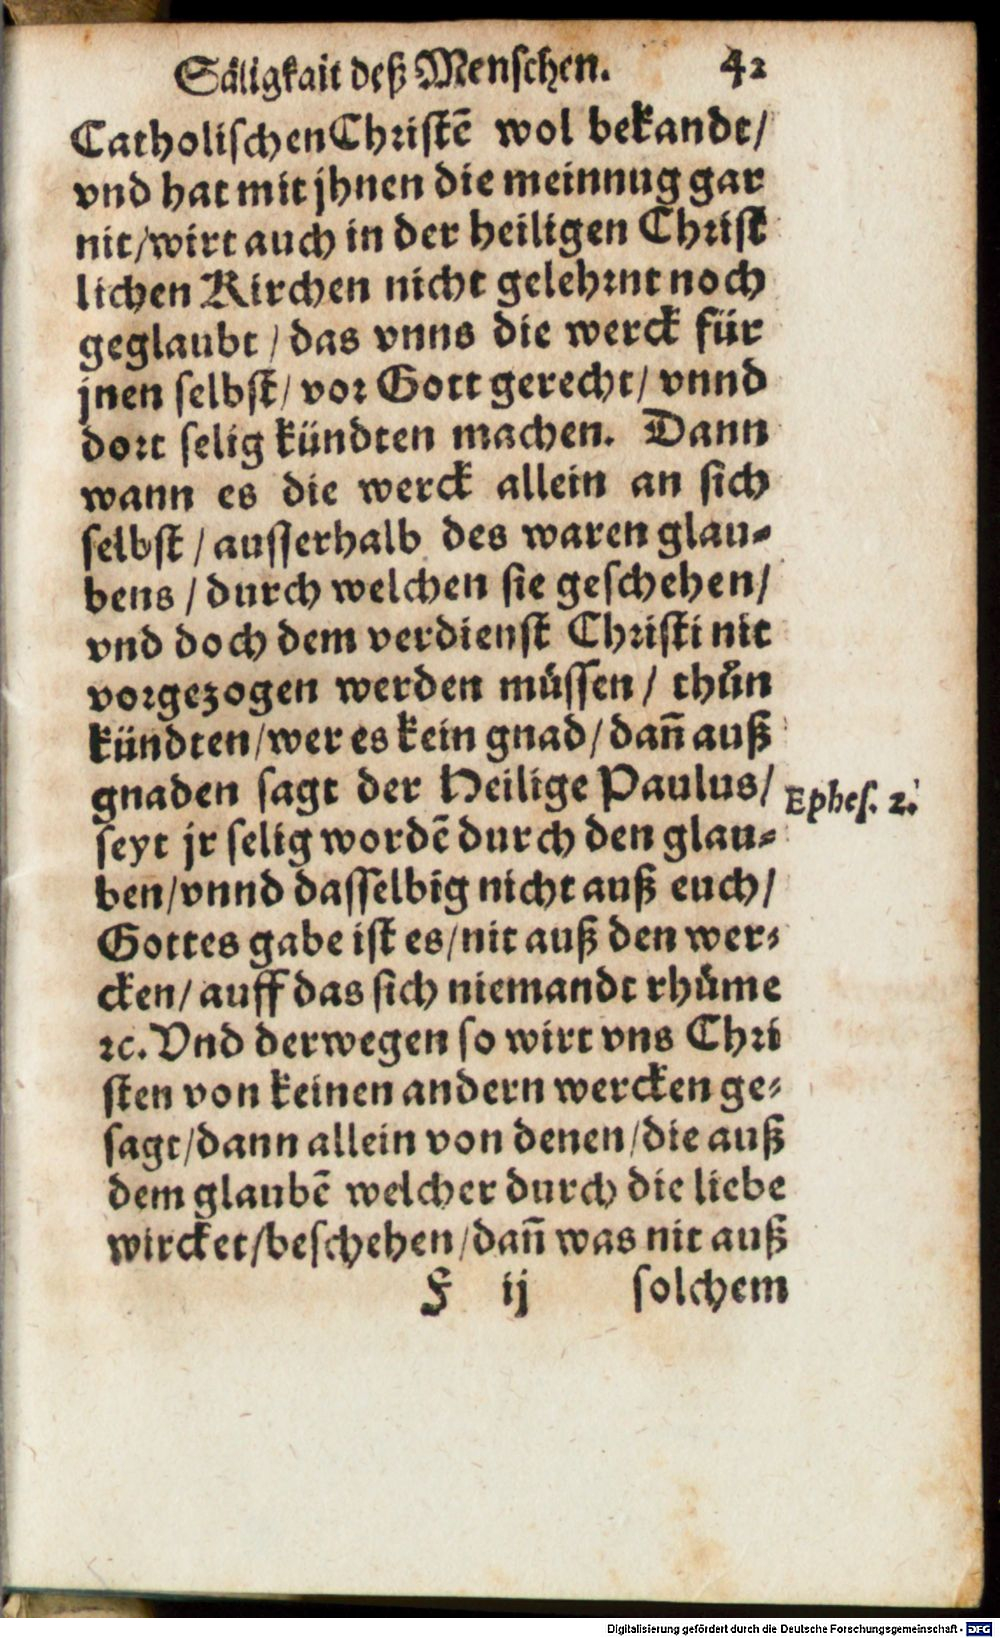 Säligkait deß Menschen. 42
Catholischen Christē wol bekandt/
vnd hat mit jhnen die meinnug gar
nit/wirt auch in der heiligen Christ
lichen Kirchen nicht gelehrnt noch
geglaubt/ das vnns die werck für
jnen selbst/ vor Gott gerecht/ vnnd
dort selig kündten machen. Dann
wann es die werck allein an sich
selbst/ausserhalb des waren glau-
bens/durch welchen sie geschehen/
vnd doch dem verdienst Christi nit
vorgezogen werden müssen/ thůn
kündten/wer es kein gnad/dañ auß
gnaden sagt der Heilige Paulus/ Ephes. 2.
seyt jr selig wordē durch den glau-
ben/vnnd dasselbig nicht auß euch/
Gottes gabe ist es/nit auß den wer-
cken/auff das sich niemandt rhůme
ꝛc. Vnd derwegen so wirt vns Chri
sten von keinen andern wercken ge-
sagt/dann allein von denen/die auß
dem glaubē welcher durch die liebe
wircket/beschehen/dañ was nit auß
F ij solchem
Digitalisierung gefördert durch die Deutsche Forschungsgemeinschaft - DFG